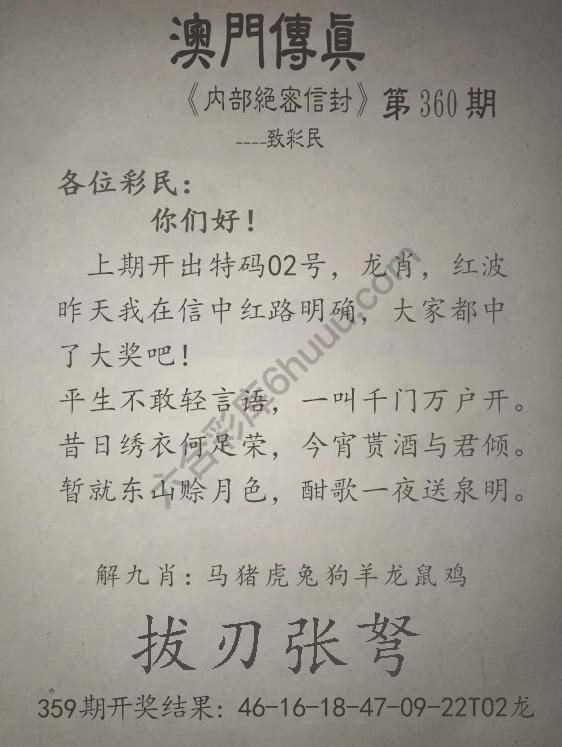 澳門傳眞
《内部絕密信封》第360期
----致彩民
各位彩民：
你们好！
上期开出特码02号，龙肖，红波
昨天我在信中红路明确，大家都中
了大奖吧！
平生不敢轻言语，一叫千门万户开。
昔日绣衣何足荣，今宵贳酒与君倾。
暂就东山赊月色，酣歌一夜送泉明。
解九肖：马猪虎兔狗羊龙鼠鸡
拔刃张弩
359期开奖结果：46-16-18-47-09-22T02龙
六合彩库6huuu.com